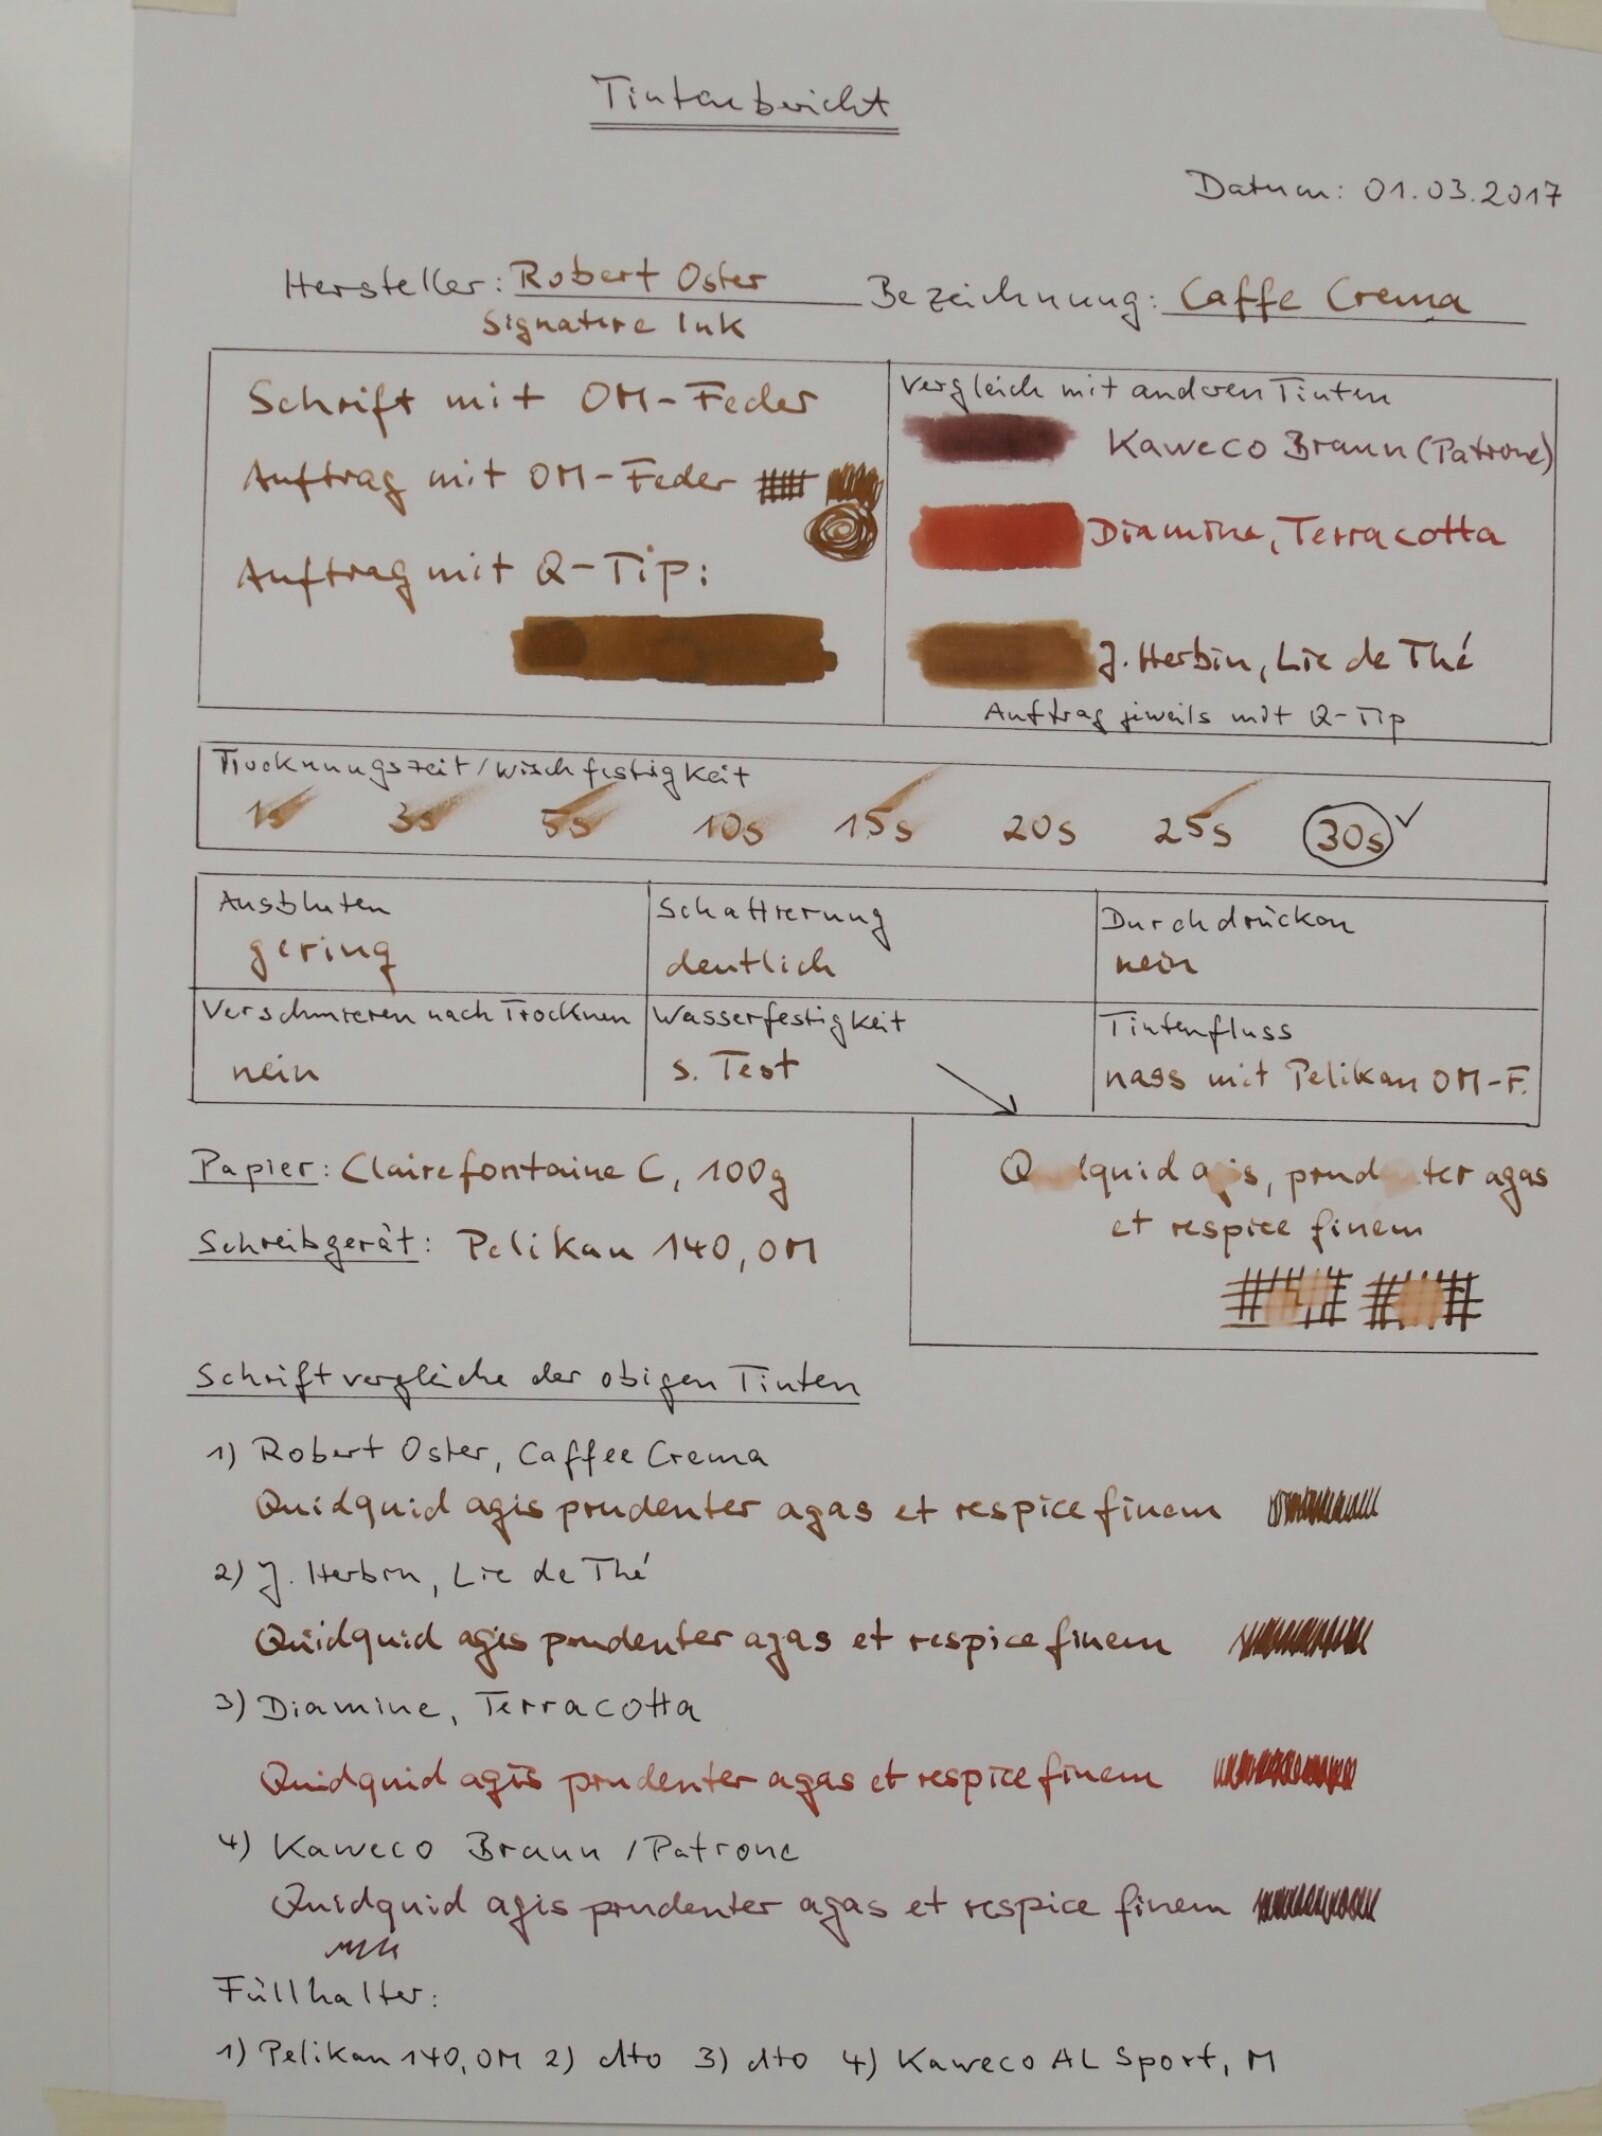 Tintenbericht
Datum: 01.03.2017
Hersteller: Robert Oster
Signature Ink
Bezeichnung: Caffe Crema
Schrift mit OM-Feder
Auftrag mit OM-Feder
Auftrag mit Q-Tip:
Vergleich mit anderen Tinten
Kaweco Braun (Patrone)
Diamine, Terracotta
J. Herbin, Lie de Thé
Auftrag jeweils mit Q-Tip
Trocknungszeit/Wischfestigkeit
1s 3s 5s 10s 15s 20s 25s 30s ✓
Ausbluten
gering
Schattierung
deutlich
Durchdrücken
nein
Verschmieren nach Trocknen
nein
Wasserfestigkeit
s. Test
Tintenfluss
nass mit Pelikan OM-F.
Papier: Clairefontaine C, 100g
Schreibgerät: Pelikan 140, OM
Q lquid agis, prudenter agas
et respice finem
Schriftvergleiche der obigen Tinten
1) Robert Oster, Caffee Crema
Quidquid agis prudenter agas et respice finem
2) J. Herbin, Lie de Thé
Quidquid agis prudenter agas et respice finem
3) Diamine, Terracotta
Quidquid agis prudenter agas et respice finem
4) Kaweco Braun /Patrone
Quidquid agis prudenter agas et respice finem
Füllhalter:
1) Pelikan 140, OM 2) dto 3) dto 4) Kaweco AL Sport, M